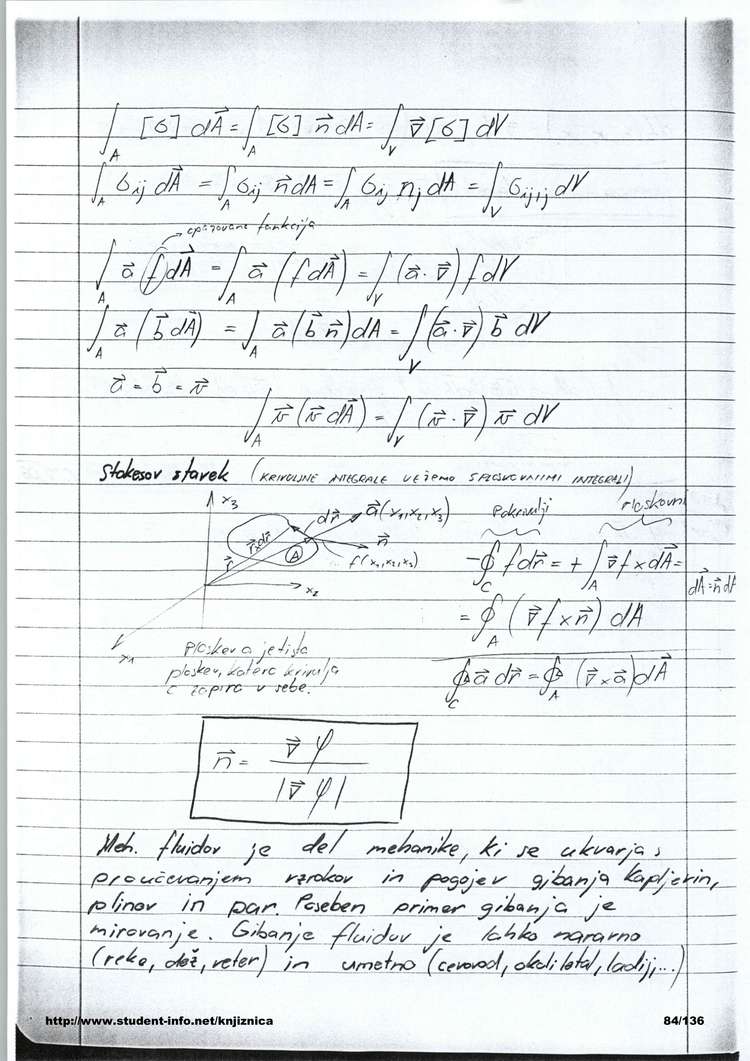 ∫_A [σ] dA⃗ = ∫_A [σ] n⃗ dA = ∫_V ∇⃗ [σ] dV
∫_A σ_ij dA⃗ = ∫_A σ_ij n⃗ dA = ∫_A σ_ij n_j dA = ∫_V σ_ij,j dV
opazovana funkcija
∫_A a⃗ (f) dA⃗ = ∫_A a⃗ (f dA⃗) = ∫_V (a⃗ · ∇⃗) f dV
∫_A a⃗ (b⃗ dA⃗) = ∫_A a⃗ (b⃗ n⃗) dA = ∫_V (a⃗ · ∇⃗) b⃗ dV
a⃗ = b⃗ = v⃗
∫_A v⃗ (v⃗ dA⃗) = ∫_V (v⃗ · ∇⃗) v⃗ dV
Stokesov stavek (KRIVULJNE INTEGRALE VEŽEMO S PLOSKOVNIMI INTEGRALI)
x₃
dr⃗
a⃗(x₁,x₂,x₃)
n⃗
f(x₁,x₂,x₃)
r⃗xdr⃗
A
r⃗
x₂
x₁
Ploskev a je tista
ploskev, katero krivulja
c zapira v sebe.
Po krivulji ploskovni
-∮_C f dr⃗ = + ∫_A ∇⃗f × dA⃗ =
dA⃗ = n⃗ dA
= ∮_A (∇⃗f × n⃗) dA
∮_C a⃗ dr⃗ = ∮_A (∇⃗ × a⃗) dA⃗
n⃗ = ∇⃗φ / |∇⃗φ|
Meh. fluidov je del mehanike, ki se ukvarja s
proučevanjem vzrokov in pogojev gibanja kapljevin,
plinov in par. Poseben primer gibanja je
mirovanje. Gibanje fluidov je lahko naravno
(reke, dež, veter) in umetno (cevovod, okoli letal, ladij,...)
http://www.student-info.net/knjiznica
84/136